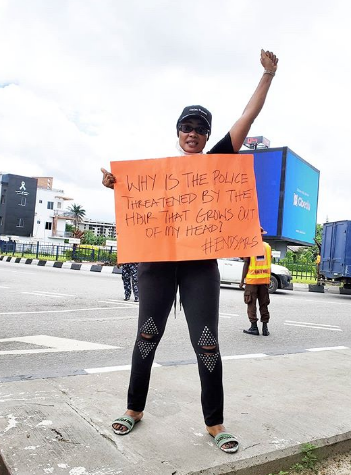 WHY IS THE POLICE
THREATENED BY THE
HAIR THAT GROWS OUT
OF MY HEAD?
#ENDSARS